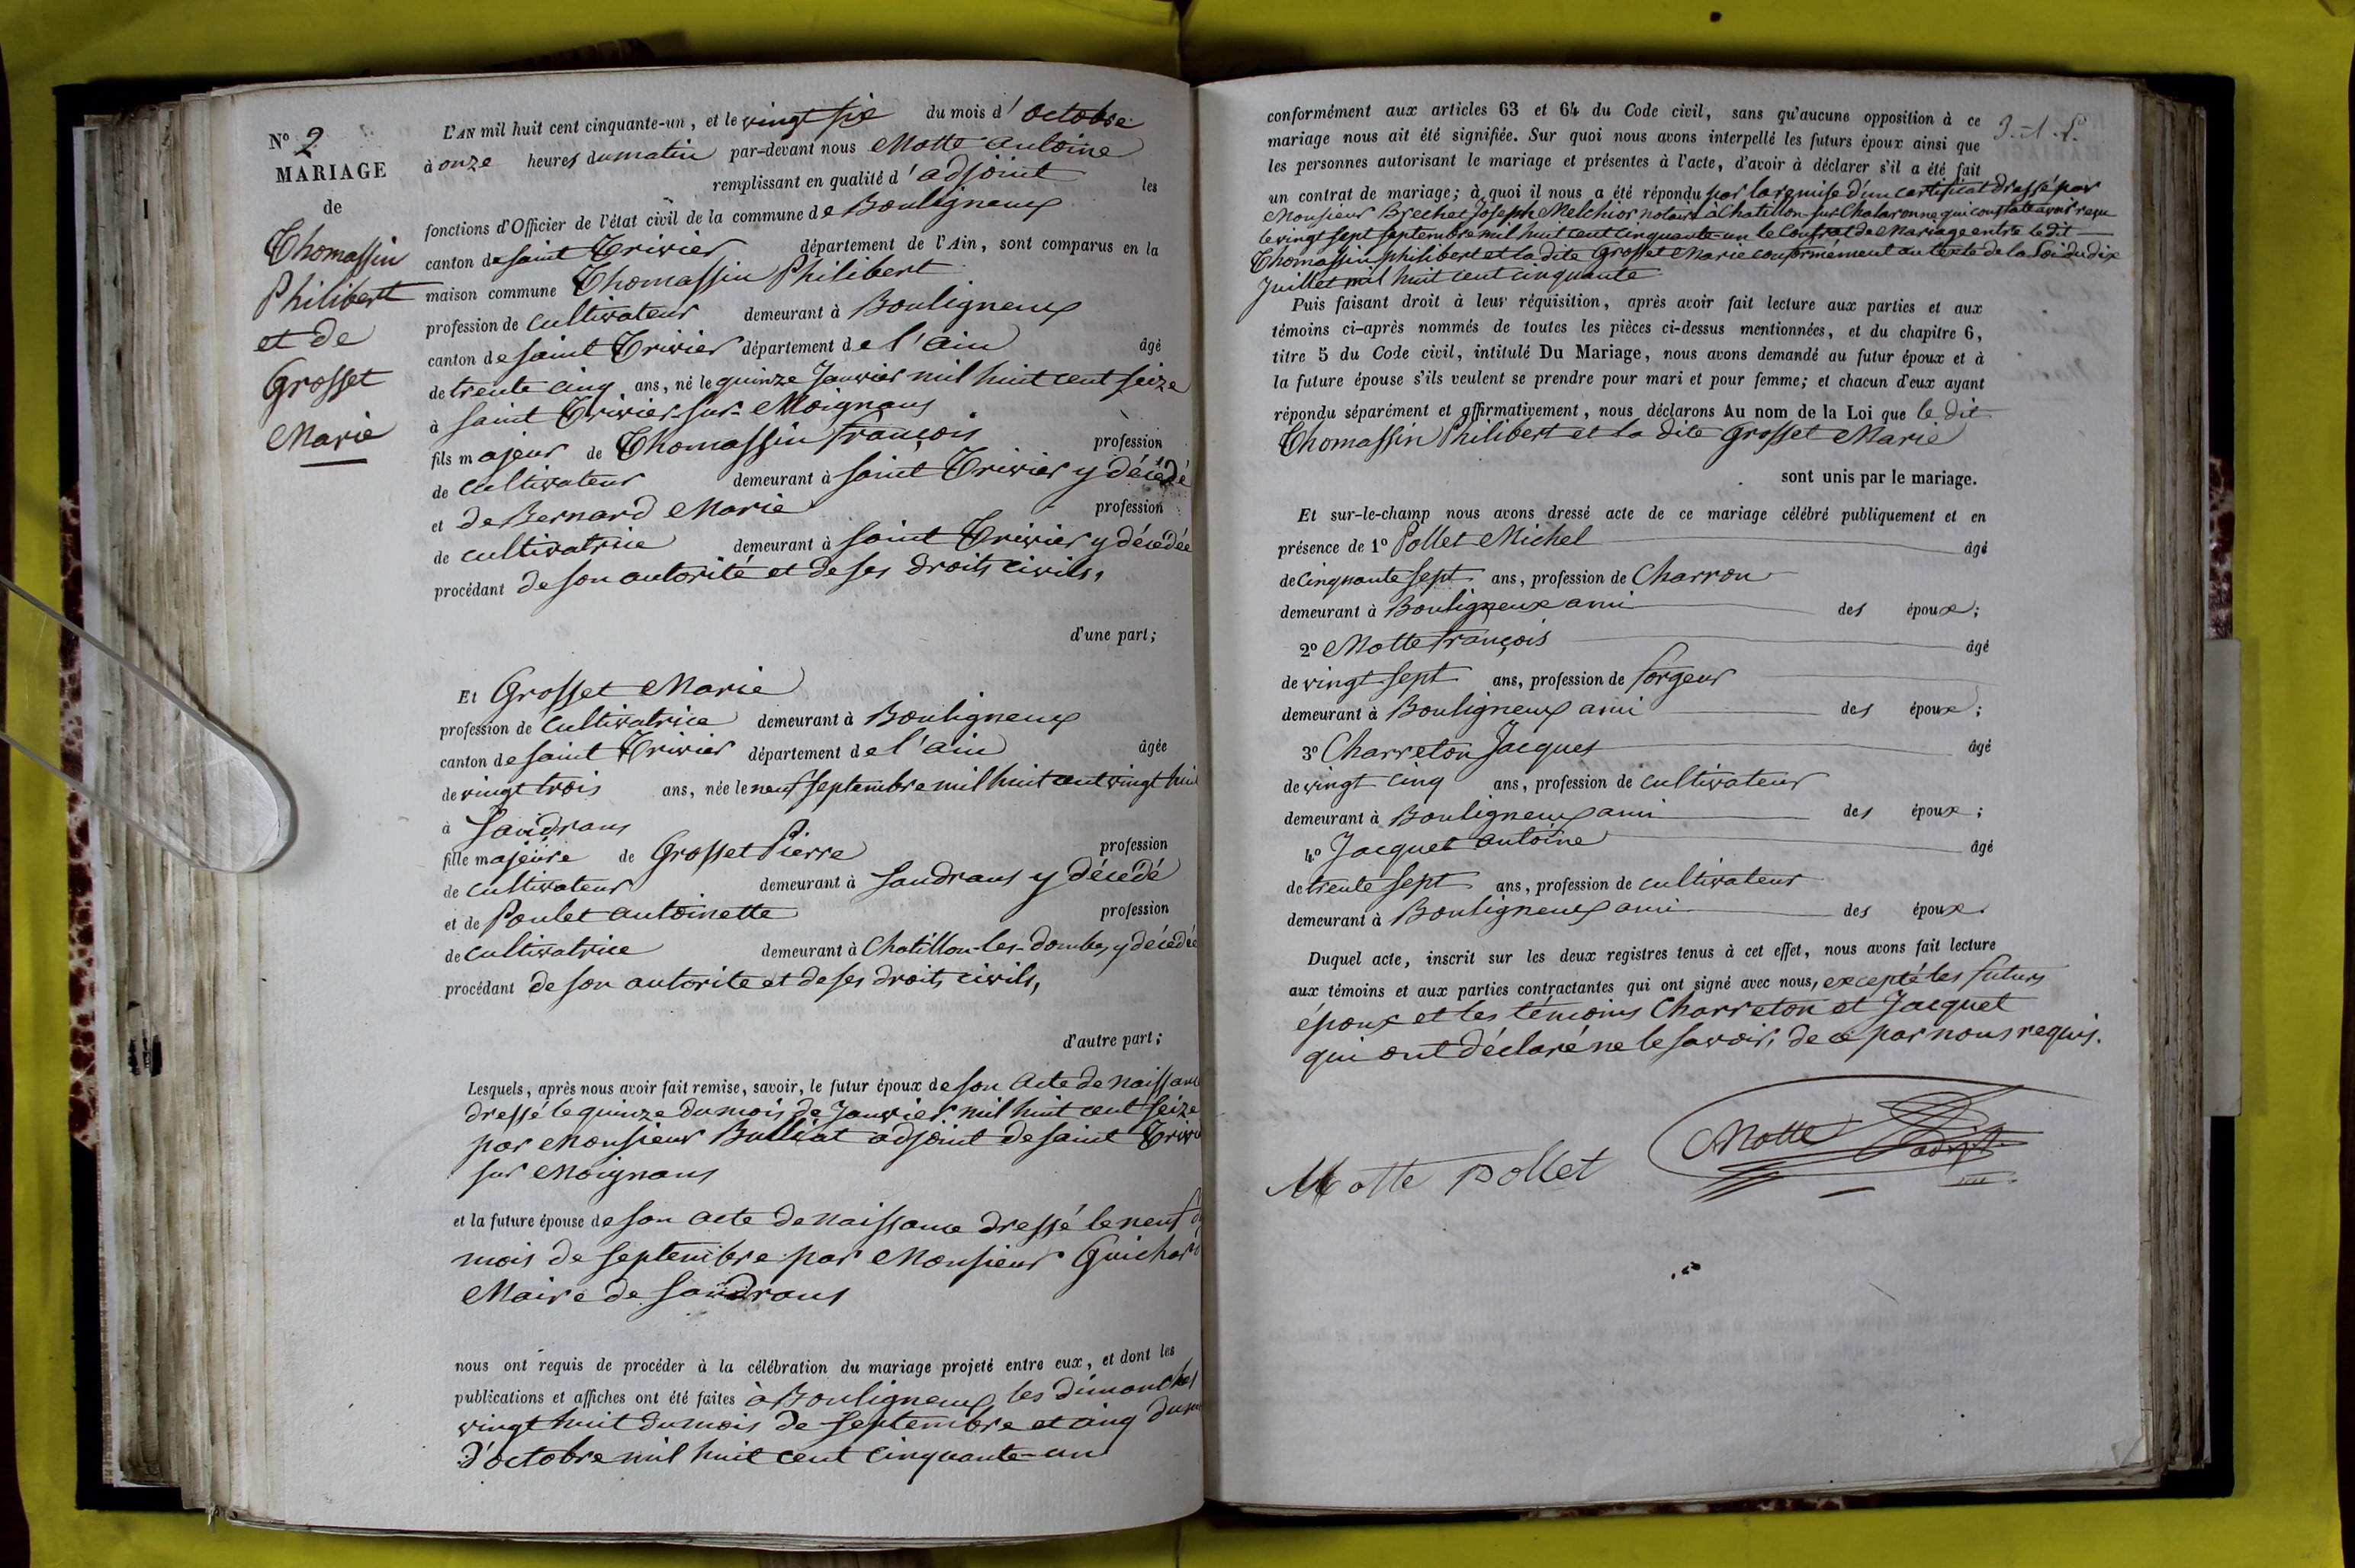 N° 2
MARIAGE
de
Thomassin
Philibert
et de
Grosset
Marie
L'AN mil huit cent cinquante-un, et le vingt six du mois d'octobre
à onze heures du matin par-devant nous Motte Antoine
remplissant en qualité d'adjoint les
fonctions d'Officier de l'état civil de la commune de Bouligneux
canton de saint Trivier département de l'Ain, sont comparus en la
maison commune Thomassin Philibert
profession de cultivateur demeurant à Bouligneux
canton de saint Trivier département de l'ain âgé
de trente cinq ans, né le quinze Janvier mil huit cent seize
à saint Trivier-sur-Moignans
fils majeur de Thomassin françois profession
de cultivateur demeurant à saint Trivier y décédé
et de Bernard Marie profession
de cultivatrice demeurant à saint Trivier y décédée
procédant de son autorité et de ses droits civils,
d'une part;
Et Grosset Marie
profession de cultivatrice demeurant à Bouligneux
canton de saint Trivier département de l'ain âgée
de vingt trois ans, née le neuf septembre mil huit cent vingt huit
à Sandrans
fille majeure de Grosset Pierre profession
de cultivateur demeurant à Sandrans y décédé
et de Poulet antoinette profession
de cultivatrice demeurant à Chatillon-les-Dombes y décédée
procédant de son autorité et de ses droits civils,
d'autre part;
Lesquels, après nous avoir fait remise, savoir, le futur époux de son acte de naissance
dressé le quinze du mois de Janvier mil huit cent seize
par Monsieur Bulliat adjoint de saint Trivier
sur Moignans
et la future épouse de son acte de naissance dressé le neuf du
mois de septembre par Monsieur Guichard
Maire de Sandrans
nous ont requis de procéder à la célébration du mariage projeté entre eux, et dont les
publications et affiches ont été faites à Bouligneux les dimanches
vingt huit du mois de septembre et cinq du mois
d'octobre mil huit cent cinquante-un
conformément aux articles 63 et 64 du Code civil, sans qu'aucune opposition à ce
mariage nous ait été signifiée. Sur quoi nous avons interpellé les futurs époux ainsi que
les personnes autorisant le mariage et présentes à l'acte, d'avoir à déclarer s'il a été fait
un contrat de mariage; à quoi il nous a été répondu par la remise d'un certificat dressé par
Monsieur Brechet Joseph Melchior notaire à Chatillon-sur-Chalaronne qui constate avoir reçu
le vingt sept septembre mil huit cent cinquante-un le Contrat de Mariage entre le dit
Thomassin philibert et la dite Grosset Marie conformément au texte de la Loi du dix
Juillet mil huit cent cinquante
Puis faisant droit à leur réquisition, après avoir fait lecture aux parties et aux
témoins ci-après nommés de toutes les pièces ci-dessus mentionnées, et du chapitre 6,
titre 5 du Code civil, intitulé Du Mariage, nous avons demandé au futur époux et à
la future épouse s'ils veulent se prendre pour mari et pour femme; et chacun d'eux ayant
répondu séparément et affirmativement, nous déclarons Au nom de la Loi que le dit
Thomassin Philibert et la dite Grosset Marie
sont unis par le mariage.
Et sur-le-champ nous avons dressé acte de ce mariage célébré publiquement et en
présence de 1° Pollet Michel âgé
de cinquante sept ans, profession de Charron
demeurant à Bouligneux ami des époux;
2° Motte françois âgé
de vingt sept ans, profession de forgeur
demeurant à Bouligneux ami des époux;
3° Charreton Jacques âgé
de vingt cinq ans, profession de cultivateur
demeurant à Bouligneux ami des époux;
4° Jacquet antoine âgé
de trente sept ans, profession de cultivateur
demeurant à Bouligneux ami des époux.
Duquel acte, inscrit sur les deux registres tenus à cet effet, nous avons fait lecture
aux témoins et aux parties contractantes qui ont signé avec nous, excepté les futurs
époux et les témoins Charreton et Jacquet
qui ont déclaré ne le savoir, de ce par nous requis.
Motte Pollet Motte adjt